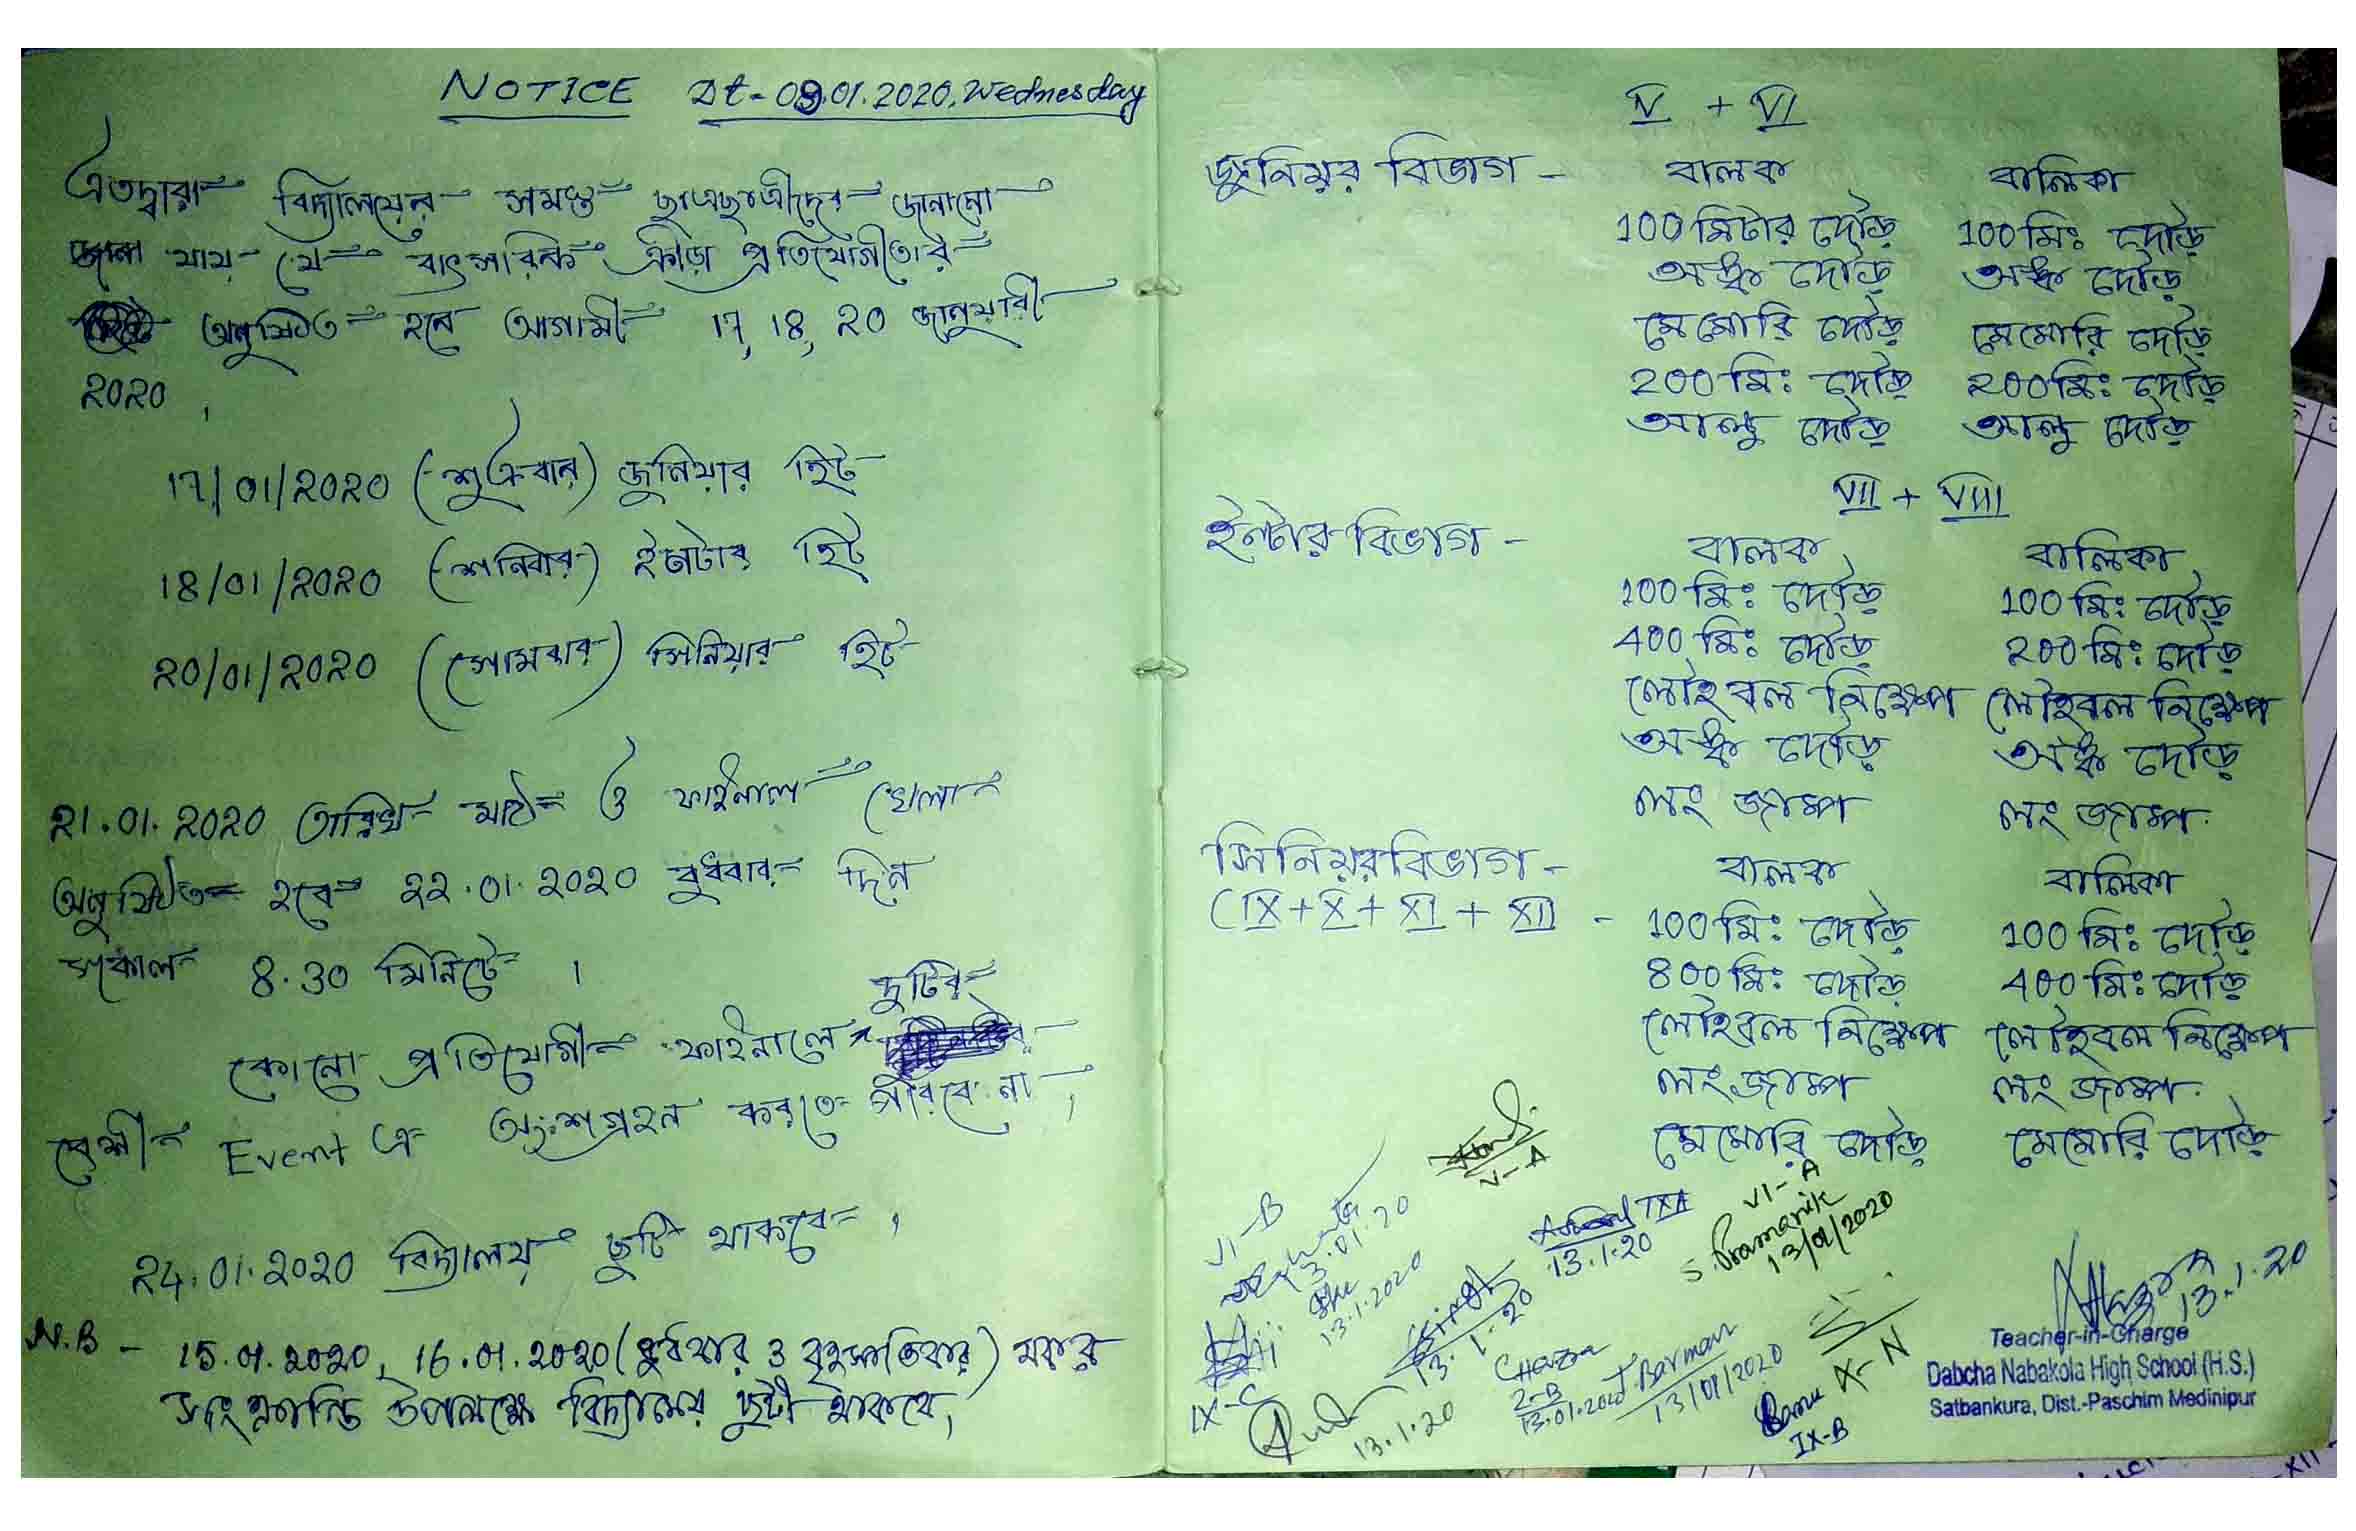 NOTICE Dt - 08.01.2020, Wednesday
এতদ্বারা বিদ্যালয়ের সমস্ত ছাত্রছাত্রীদের জানানো
যায় যে বাৎসরিক ক্রীড়া প্রতিযোগীতার
অনুষ্ঠিত হবে আগামী 17, 18, 20 জানুয়ারী
2020 ,
17/01/2020 (শুক্রবার) জুনিয়ার হিট
18/01/2020 (শনিবার) ইন্টার হিট
20/01/2020 (সোমবার) সিনিয়ার হিট
21.01.2020 তারিখ মাঠ ও ফাইনাল খেলা
অনুষ্ঠিত হবে 22.01.2020 বুধবার দিন
সকাল 8.30 মিনিটে ।
কোনো প্রতিযোগী ফাইনালে দুটির
বেশী Event এ অংশগ্রহন করতে পারবে না ,
24.01.2020 বিদ্যালয় ছুটি থাকবে ,
N.B - 15.01.2020, 16.01.2020 (বুধবার ও বৃহস্পতিবার) মকর
সংক্রান্তি উপলক্ষে বিদ্যালয় ছুটী থাকবে,
V + VI
জুনিয়র বিভাগ - বালক বালিকা
100 মিটার দৌড় 100 মিঃ দৌড়
অঙ্ক দৌড় অঙ্ক দৌড়
মেমোরি দৌড় মেমোরি দৌড়
200 মিঃ দৌড় 200 মিঃ দৌড়
আলু দৌড় আলু দৌড়
VII + VIII
ইন্টার বিভাগ - বালক বালিকা
100 মিঃ দৌড় 100 মিঃ দৌড়
400 মিঃ দৌড় 200 মিঃ দৌড়
লৌহবল নিক্ষেপ লৌহবল নিক্ষেপ
অঙ্ক দৌড় অঙ্ক দৌড়
লং জাম্প লং জাম্প.
সিনিয়র বিভাগ - বালক বালিকা
(IX + X + XI + XII) - 100 মিঃ দৌড় 100 মিঃ দৌড়
800 মিঃ দৌড় 400 মিঃ দৌড়
লৌহবল নিক্ষেপ লৌহবল নিক্ষেপ
লং জাম্প লং জাম্প.
মেমোরি দৌড় মেমোরি দৌড়
V-A
VI-A
S. Pramanik
13/01/2020
IXA
13.1.20
13.1.2020
13.1.20
IX-C
13.1.20
13.01.2020
T. Barman
13/01/2020
IX-B
13.1.20
Teacher-in-Charge
Dabcha Nabakola High School (H.S.)
Satbankura, Dist.-Paschim Medinipur